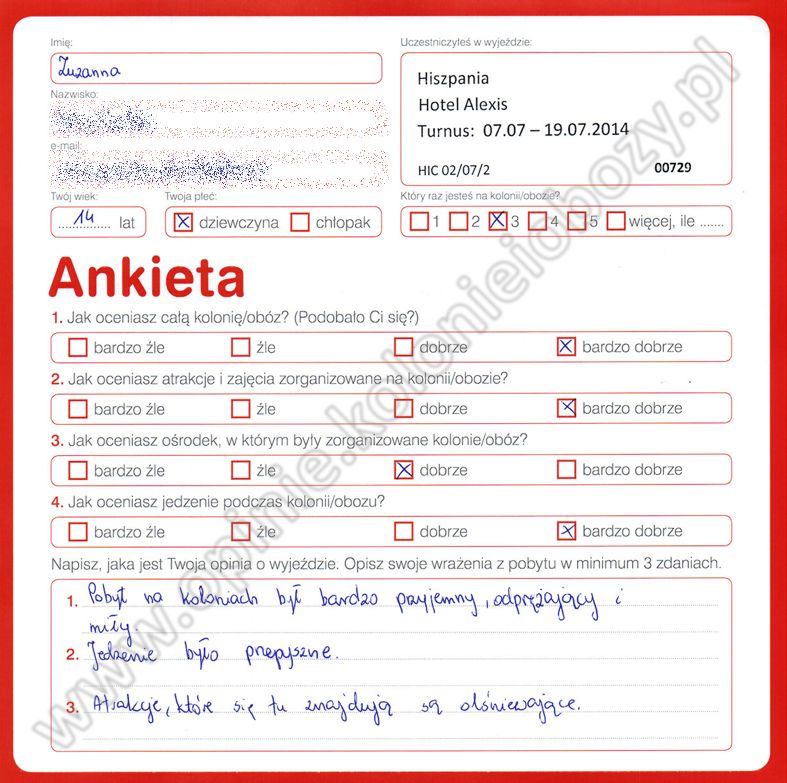 Imię:
Zuzanna
Nazwisko:
e-mail:
Twój wiek:
14 lat
Twoja płeć:
dziewczyna chłopak
Uczestniczyłeś w wyjeździe:
Hiszpania
Hotel Alexis
Turnus: 07.07 – 19.07.2014
HIC 02/07/2 00729
Który raz jesteś na kolonii/obozie?
1 2 3 4 5 więcej, ile .......
Ankieta
1. Jak oceniasz całą kolonię/obóz? (Podobało Ci się?)
bardzo źle źle dobrze bardzo dobrze
2. Jak oceniasz atrakcje i zajęcia zorganizowane na kolonii/obozie?
bardzo źle źle dobrze bardzo dobrze
3. Jak oceniasz ośrodek, w którym były zorganizowane kolonie/obóz?
bardzo źle źle dobrze bardzo dobrze
4. Jak oceniasz jedzenie podczas kolonii/obozu?
bardzo źle źle dobrze bardzo dobrze
Napisz, jaka jest Twoja opinia o wyjeździe. Opisz swoje wrażenia z pobytu w minimum 3 zdaniach.
1. Pobyt na koloniach był bardzo przyjemny, odprężający i
miły.
2. Jedzenie było przepyszne.
3. Atrakcje, które się tu znajdują są olśniewające.
www.opinie.kolonieiobozy.pl